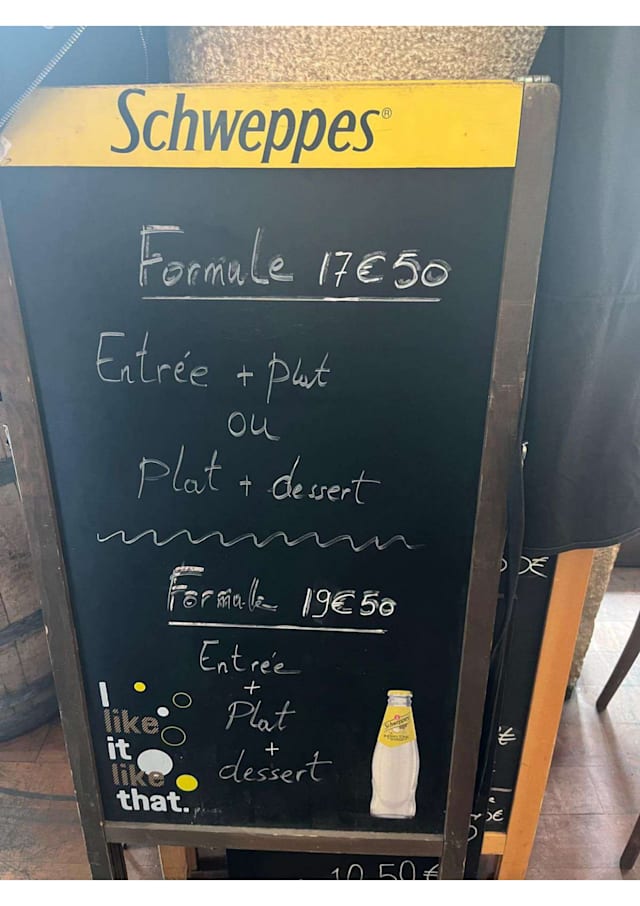 Schweppes®
Formule 17€50
Entrée + plat
ou
Plat + dessert
Formule 19€50
Entrée
+
Plat
+
dessert
I
like
it
like
that.
Schweppes
10,50€